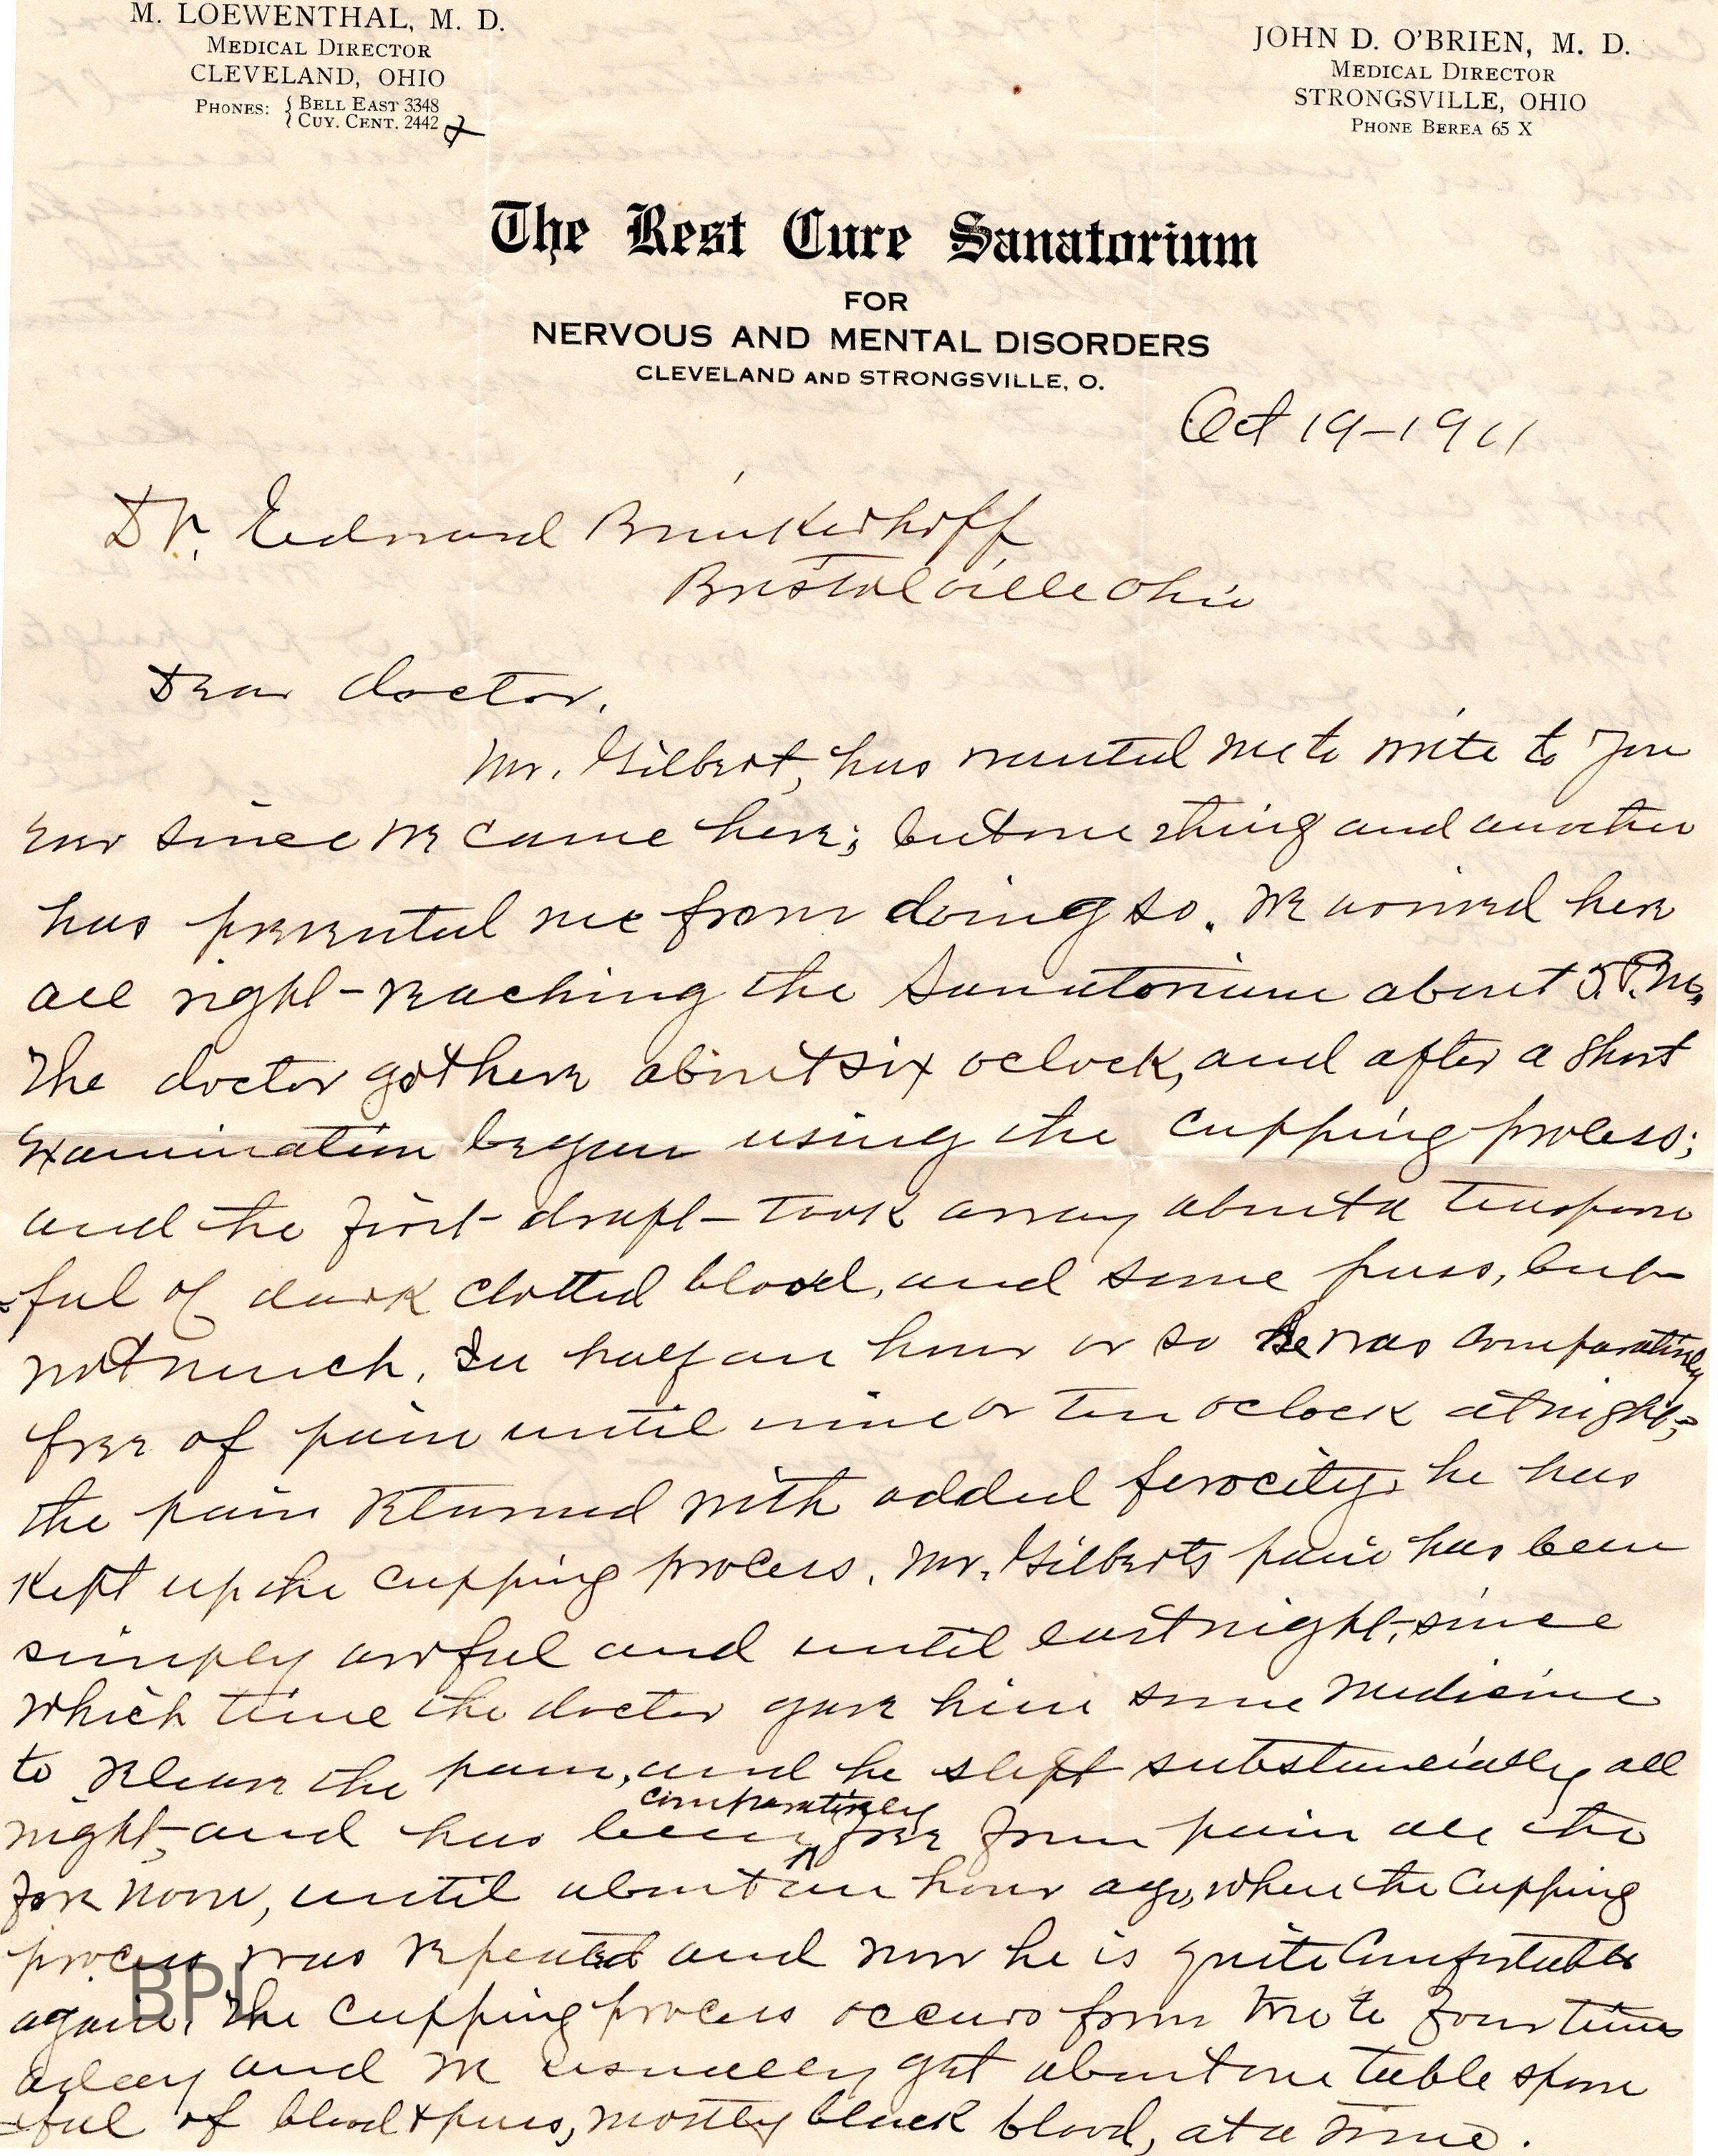 M. LOEWENTHAL, M. D.
MEDICAL DIRECTOR
CLEVELAND, OHIO
PHONES: { BELL EAST 3348
{ CUY. CENT. 2442
JOHN D. O'BRIEN, M. D.
MEDICAL DIRECTOR
STRONGSVILLE, OHIO
PHONE BEREA 65 X
The Rest Cure Sanatorium
FOR
NERVOUS AND MENTAL DISORDERS
CLEVELAND AND STRONGSVILLE, O.
Oct 19-1911
Dr. Edward Brinkerhoff
Bristolville Ohio
Dear doctor.
Mr. Gilbert, has wanted me to write to you
ever since we came here; but one thing and another
has prevented me from doing so. We arrived here
all right - reaching the Sanatorium about 5. P.M.
The doctor got here about six oclock, and after a short
examination began using the cupping process;
and the first draft took away about a teaspoon
=ful of dark clotted blood, and some puss, but
not much. In half an hour or so he was comparatively
free of pain until nine or ten oclock at night;
the pain returned with added ferocity, he has
kept up the cupping process. Mr. Gilberts pain has been
simply awful and until last night, since
which time the doctor gave him some medicine
to releave the pain, and he slept substancially all
night, and has been comparatively free from pain all the
fore noon, until about an hour ago, when the cupping
process was repeated and now he is quite comfortable
again. The cupping process occurs from two to four times
a day and we usually get about one table spoon
=ful of blood & puss, mostly black blood, at a time.
BPI